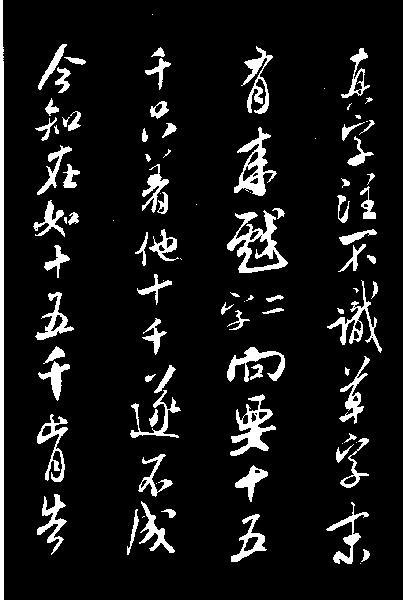 真字注不識草字末
有来戲二字向要十五
千只着他十千遂不成
今知在如十五千肯告